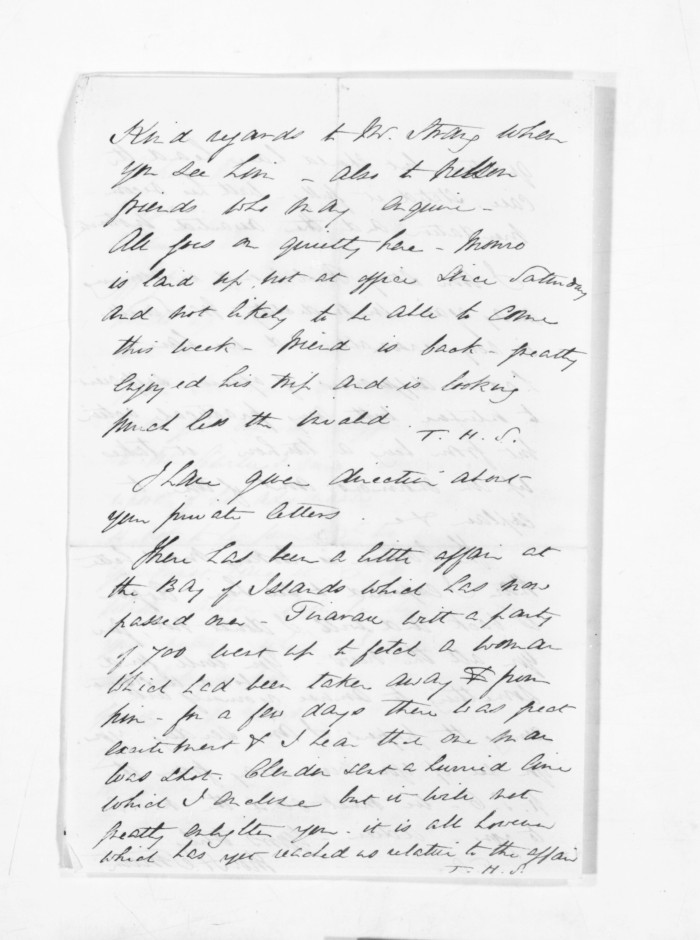 Kind regards to Mr. Strang when
you see him - also to Nelson
friends who may enquire -
All goes on quietly here - Monro
is laid up, not at office since Saturday
and not likely to be able to come
this week - friend is back - greatly
enjoyed his trip and is looking
much less the invalid.
T. H. S.
I have given direction about
your private letters.
There has been a little affair at
the Bay of Islands which has now
passed over - with a party
of 700 went up to fetch a woman
which had been taken away from
him - for a few days there was great
excitement & I hear that one man
was shot. Clendon sent a hurried line
which I enclose but it will not
greatly enlighten you. it is all however
which has yet reached us relative to the affair
T. H. S.